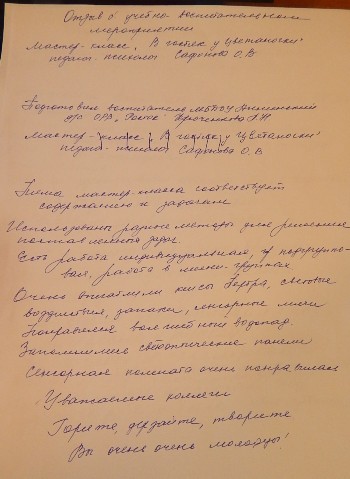 Отзыв о учебно воспитательном
мероприятии
Мастер-класс „В гостях у Цветаноски"
педагог-психолог Сафонова О.В
Подготовила воспитатель МБДОУ
д/с ОРВ „Росток"
Мастер-класс „В гостях у Цветаноски"
педагог-психолог Сафонова О.В
Тема мастер-класса соответствует
содержанию и задачам
Использованы разные методы для решения
поставленных задач
Есть работа индивидуальная, и подгруппо-
вая, работа в мини-группах
Очень впечатлили кисы бобра, световые
воздействия, запахи, сенсорные мячи
Понравился водопад.
Запомнились световые панели
Сенсорная комната очень понравилась
Уважаемые коллеги
Горите, дерзайте, творите
Вы очень очень молодцы!